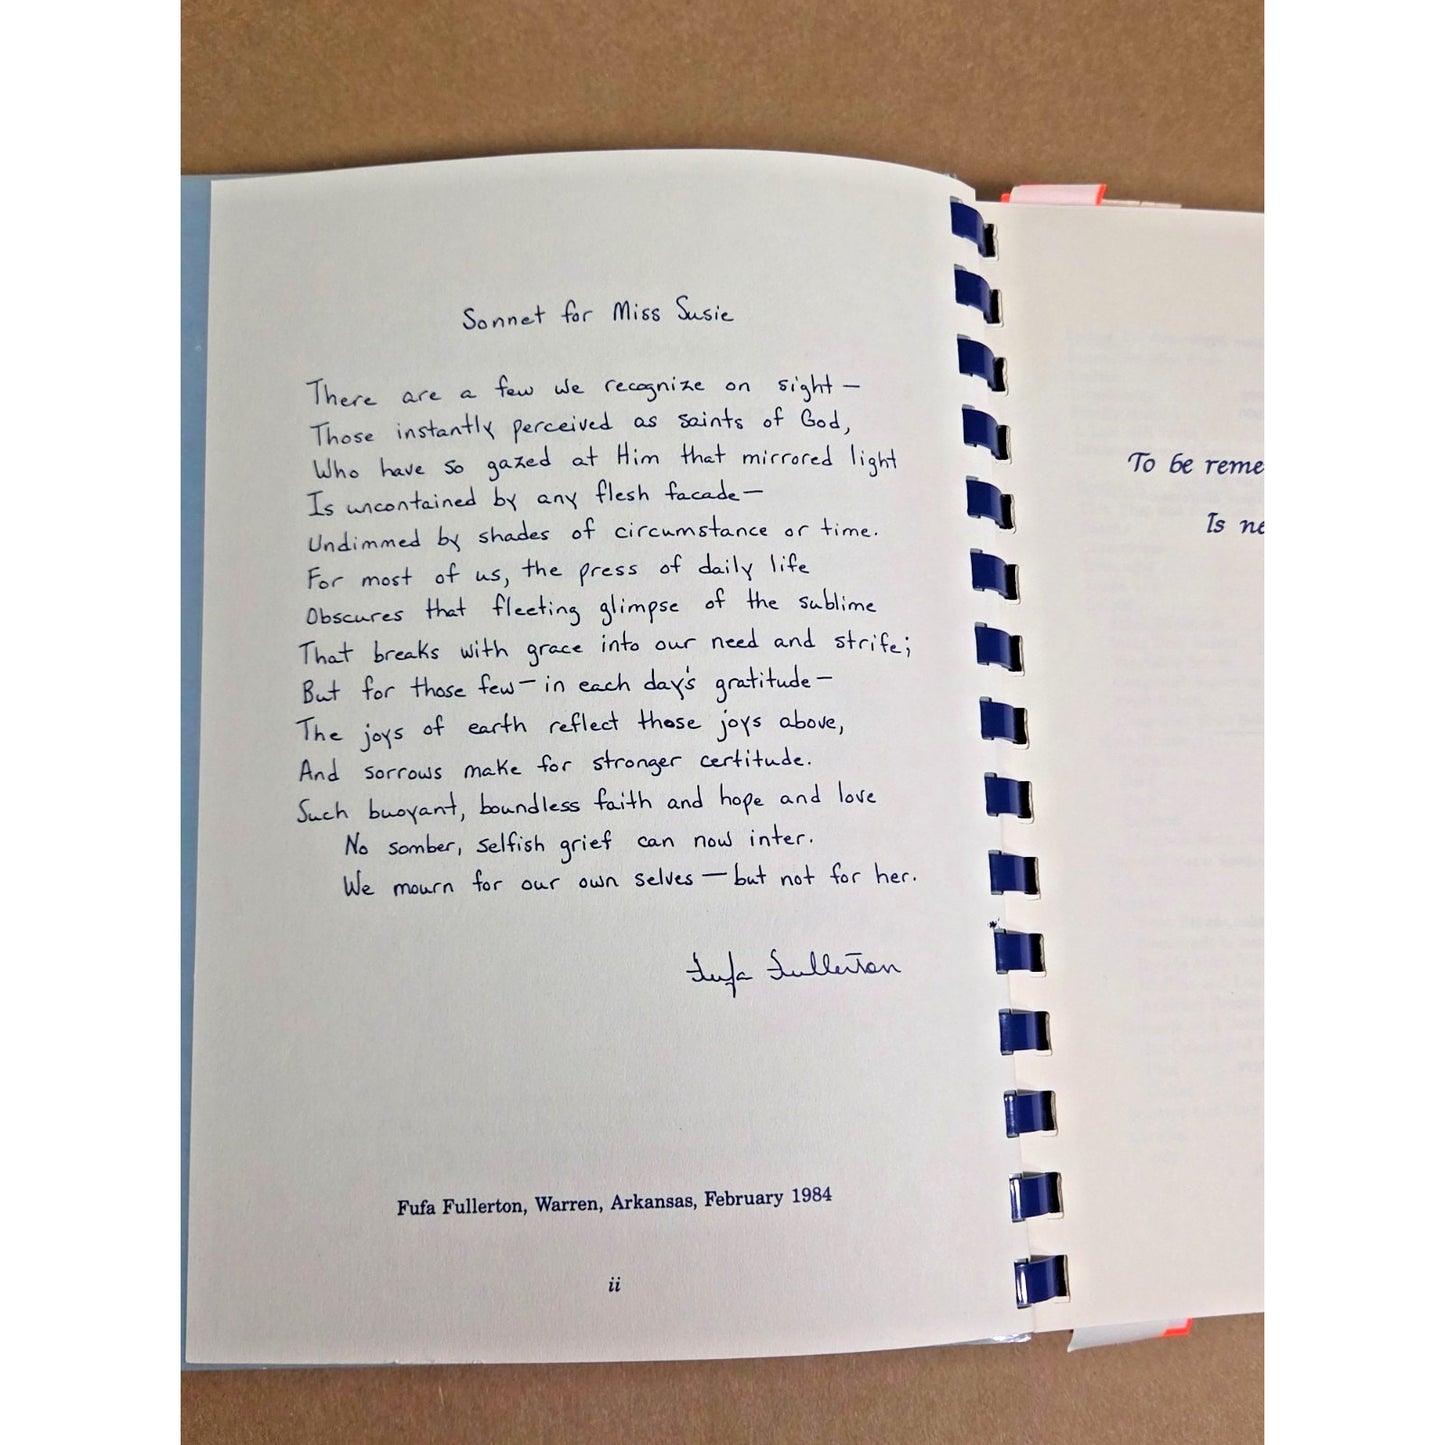 Sonnet for Miss Susie
There are a few we recognize on sight—
Those instantly perceived as saints of God,
Who have so gazed at Him that mirrored light
Is uncontained by any flesh facade—
Undimmed by shades of circumstance or time.
For most of us, the press of daily life
Obscures that fleeting glimpse of the sublime
That breaks with grace into our need and strife;
But for those few—in each day's gratitude—
The joys of earth reflect those joys above,
And sorrows make for stronger certitude.
Such buoyant, boundless faith and hope and love
No somber, selfish grief can now inter.
We mourn for our own selves—but not for her.
Fufa Fullerton
Fufa Fullerton, Warren, Arkansas, February 1984
ii
To be reme
Is ne